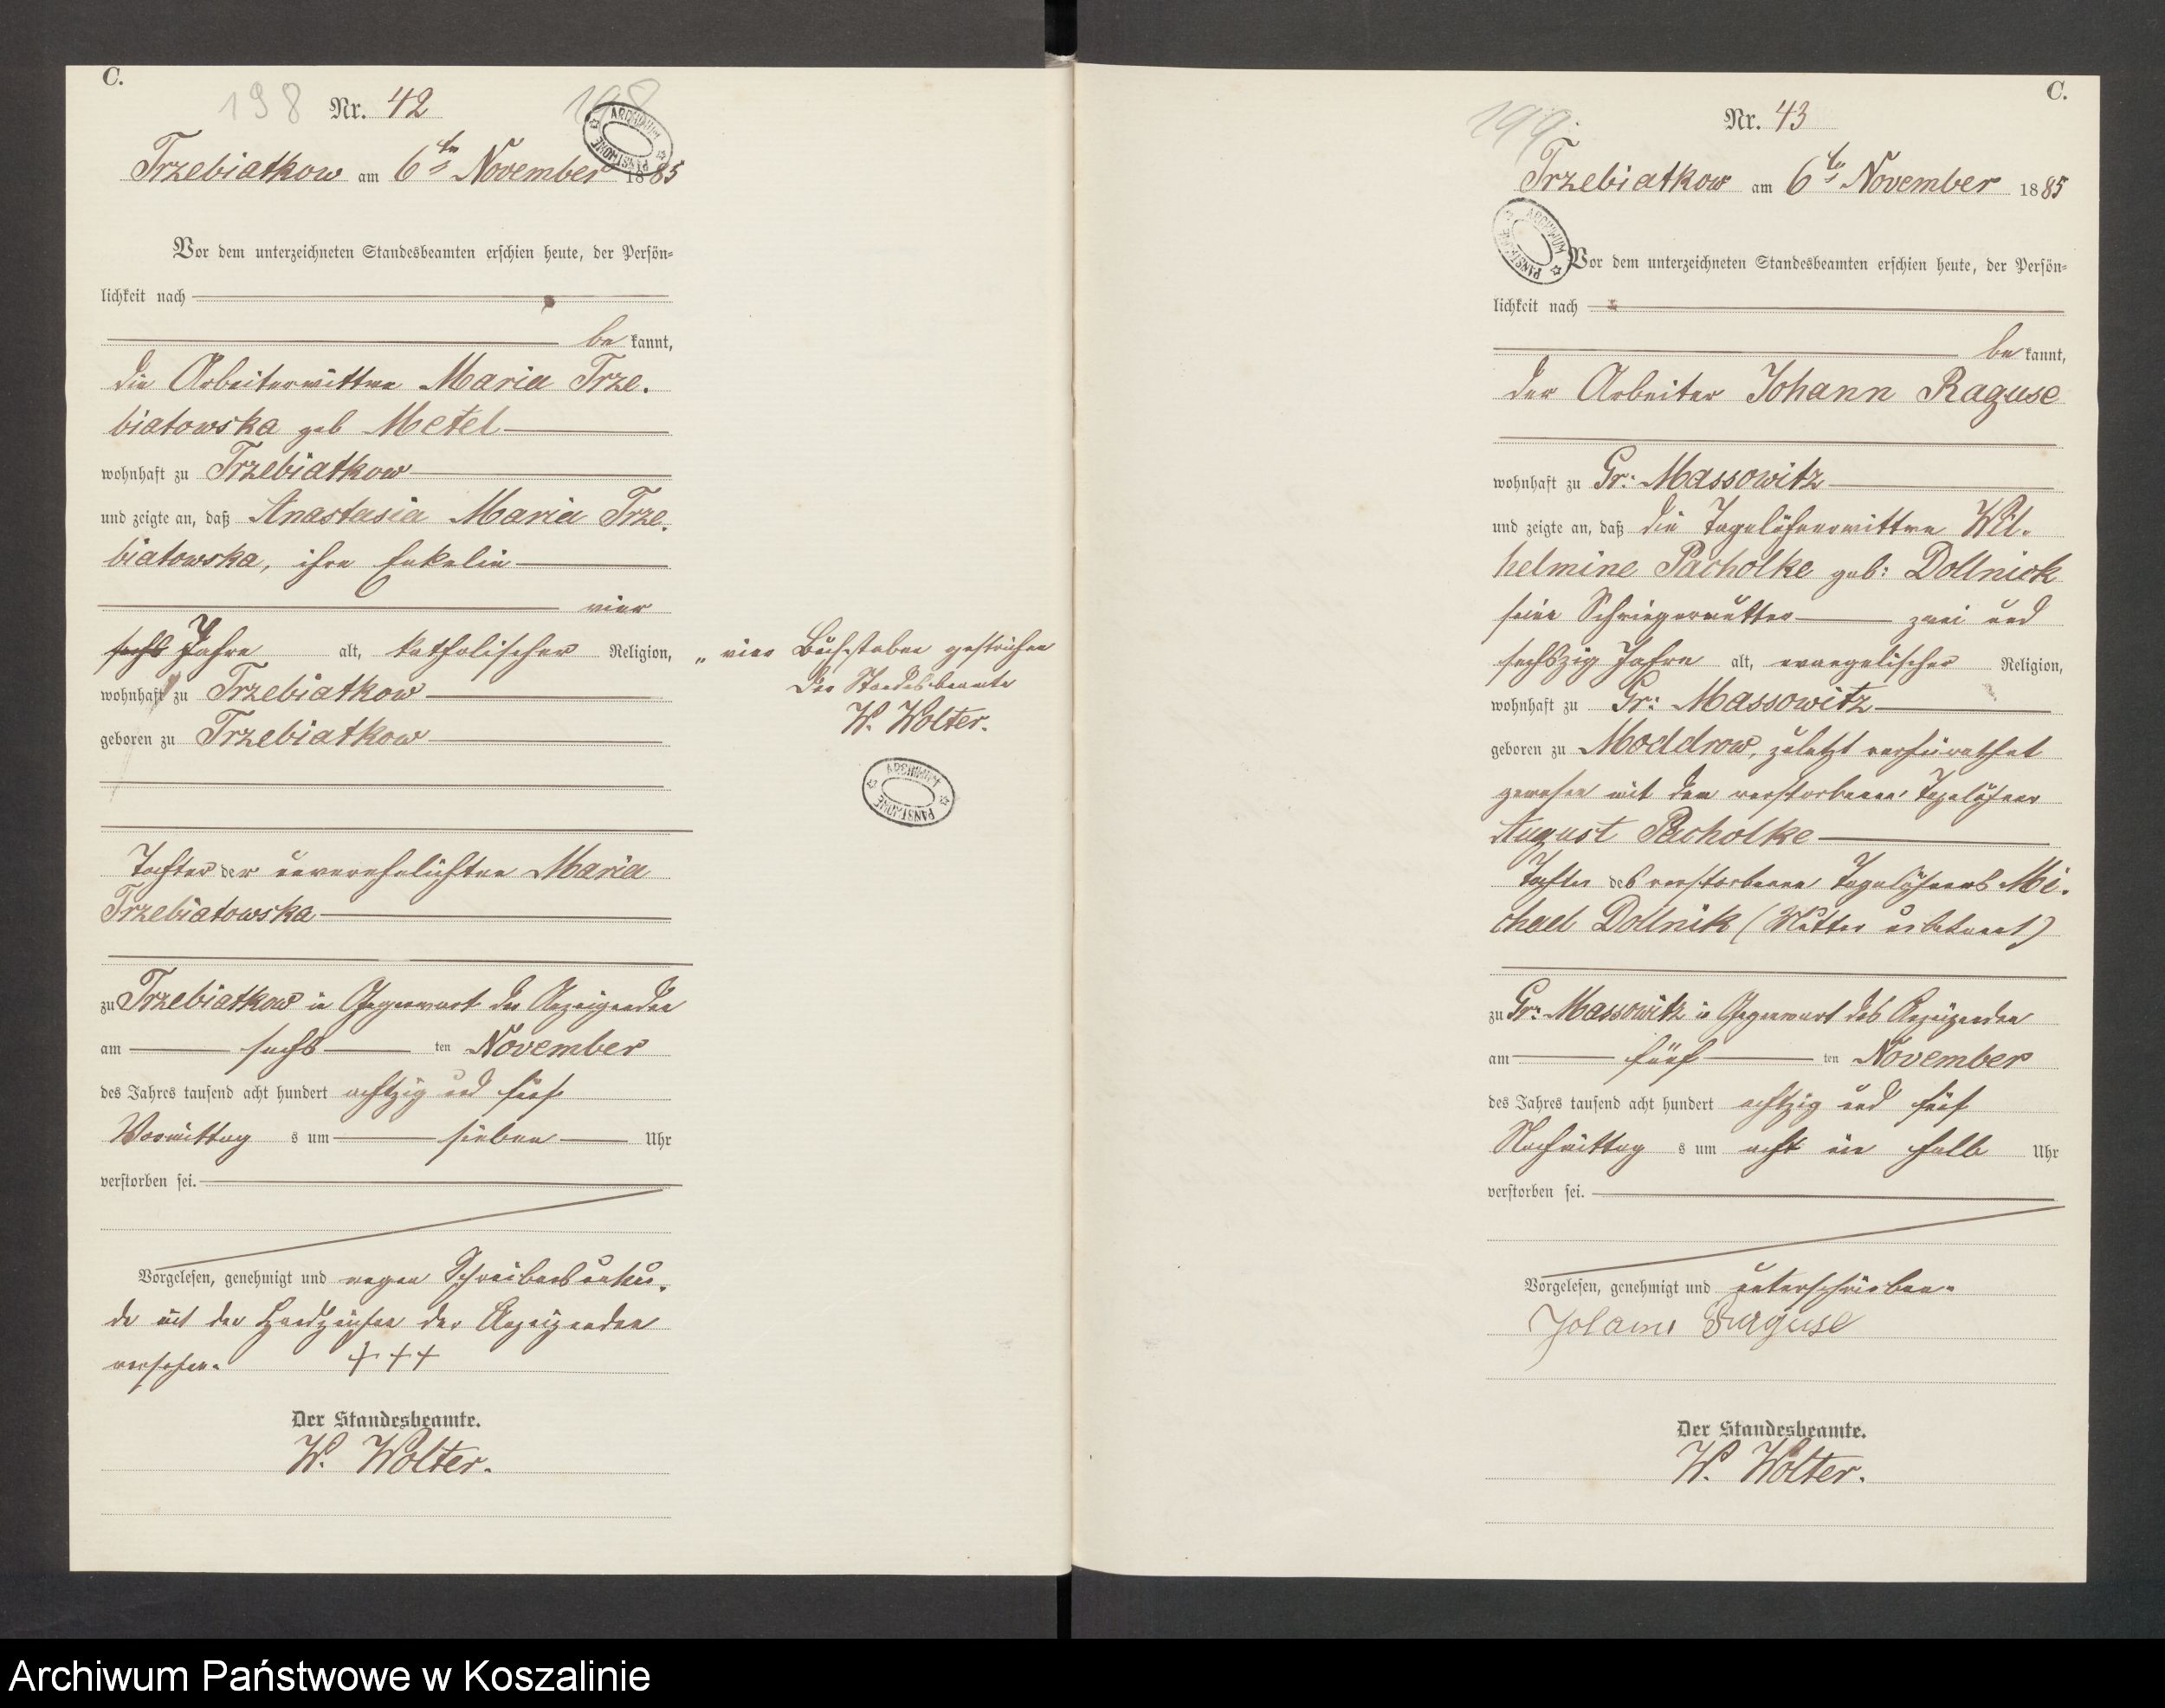 C.
198 Nr. 42 198
Trzebiatkow am 6ten November 1885
Vor dem unterzeichneten Standesbeamten erschien heute, der Persön-
lichkeit nach
be kannt,
die Arbeiterwittwe Maria Trze-
biatowska geb Metel
wohnhaft zu Trzebiatkow
und zeigte an, daß Anastasia Maria Trze-
biatowska, ihre Enkelin
vier
sechs Jahre alt, katholischer Religion,
wohnhaft zu Trzebiatkow
geboren zu Trzebiatkow
Tochter der unverehelichten Maria
Trzebiatowska
zu Trzebiatkow in Gegenwart der Anzeigenden
am sechs ten November
des Jahres tausend acht hundert achtzig und fünf
Vormittag s um sieben Uhr
verstorben sei.
Vorgelesen, genehmigt und wegen Schreibensunkun-
de mit den Handzeichen der Anzeigenden
versehen. +++
Der Standesbeamte.
W. Wolter.
„ vier Buchstaben gestrichen
Der Standesbeamte
W. Wolter.
ARCHIWUM PAŃSTWOWE
C.
199. Nr. 43
Trzebiatkow am 6ten November 1885
Vor dem unterzeichneten Standesbeamten erschien heute, der Persön-
lichkeit nach
be kannt,
der Arbeiter Johann Raguse
wohnhaft zu Gr: Massowitz
und zeigte an, daß die Tagelöhnerwittwe Wil-
helmine Pacholke geb: Dollnick
seine Schwiegermutter zwei und
sechszig Jahre alt, evangelischer Religion,
wohnhaft zu Gr: Massowitz
geboren zu Moddrow, zuletzt verheirathet
gewesen mit dem verstorbenen Tagelöhner
August Pacholke
Tochter des verstorbenen Tagelöhners Mi-
chael Dollnik (Mutter unbekannt)
zu Gr: Massowitz in Gegenwart des Anzeigenden
am fünf ten November
des Jahres tausend acht hundert achtzig und fünf
Nachmittag s um acht ein halb Uhr
verstorben sei.
Vorgelesen, genehmigt und unterschrieben.
Johann Raguse
Der Standesbeamte.
W. Wolter.
Archiwum Państwowe w Koszalinie